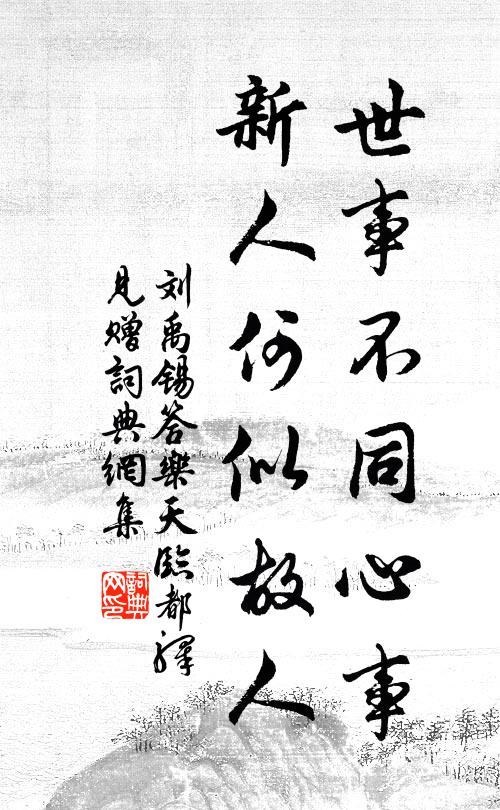 世事不同心事
新人何似故人
刘禹锡答樂天臨都驛
見贈詞典網集
詞典
网印